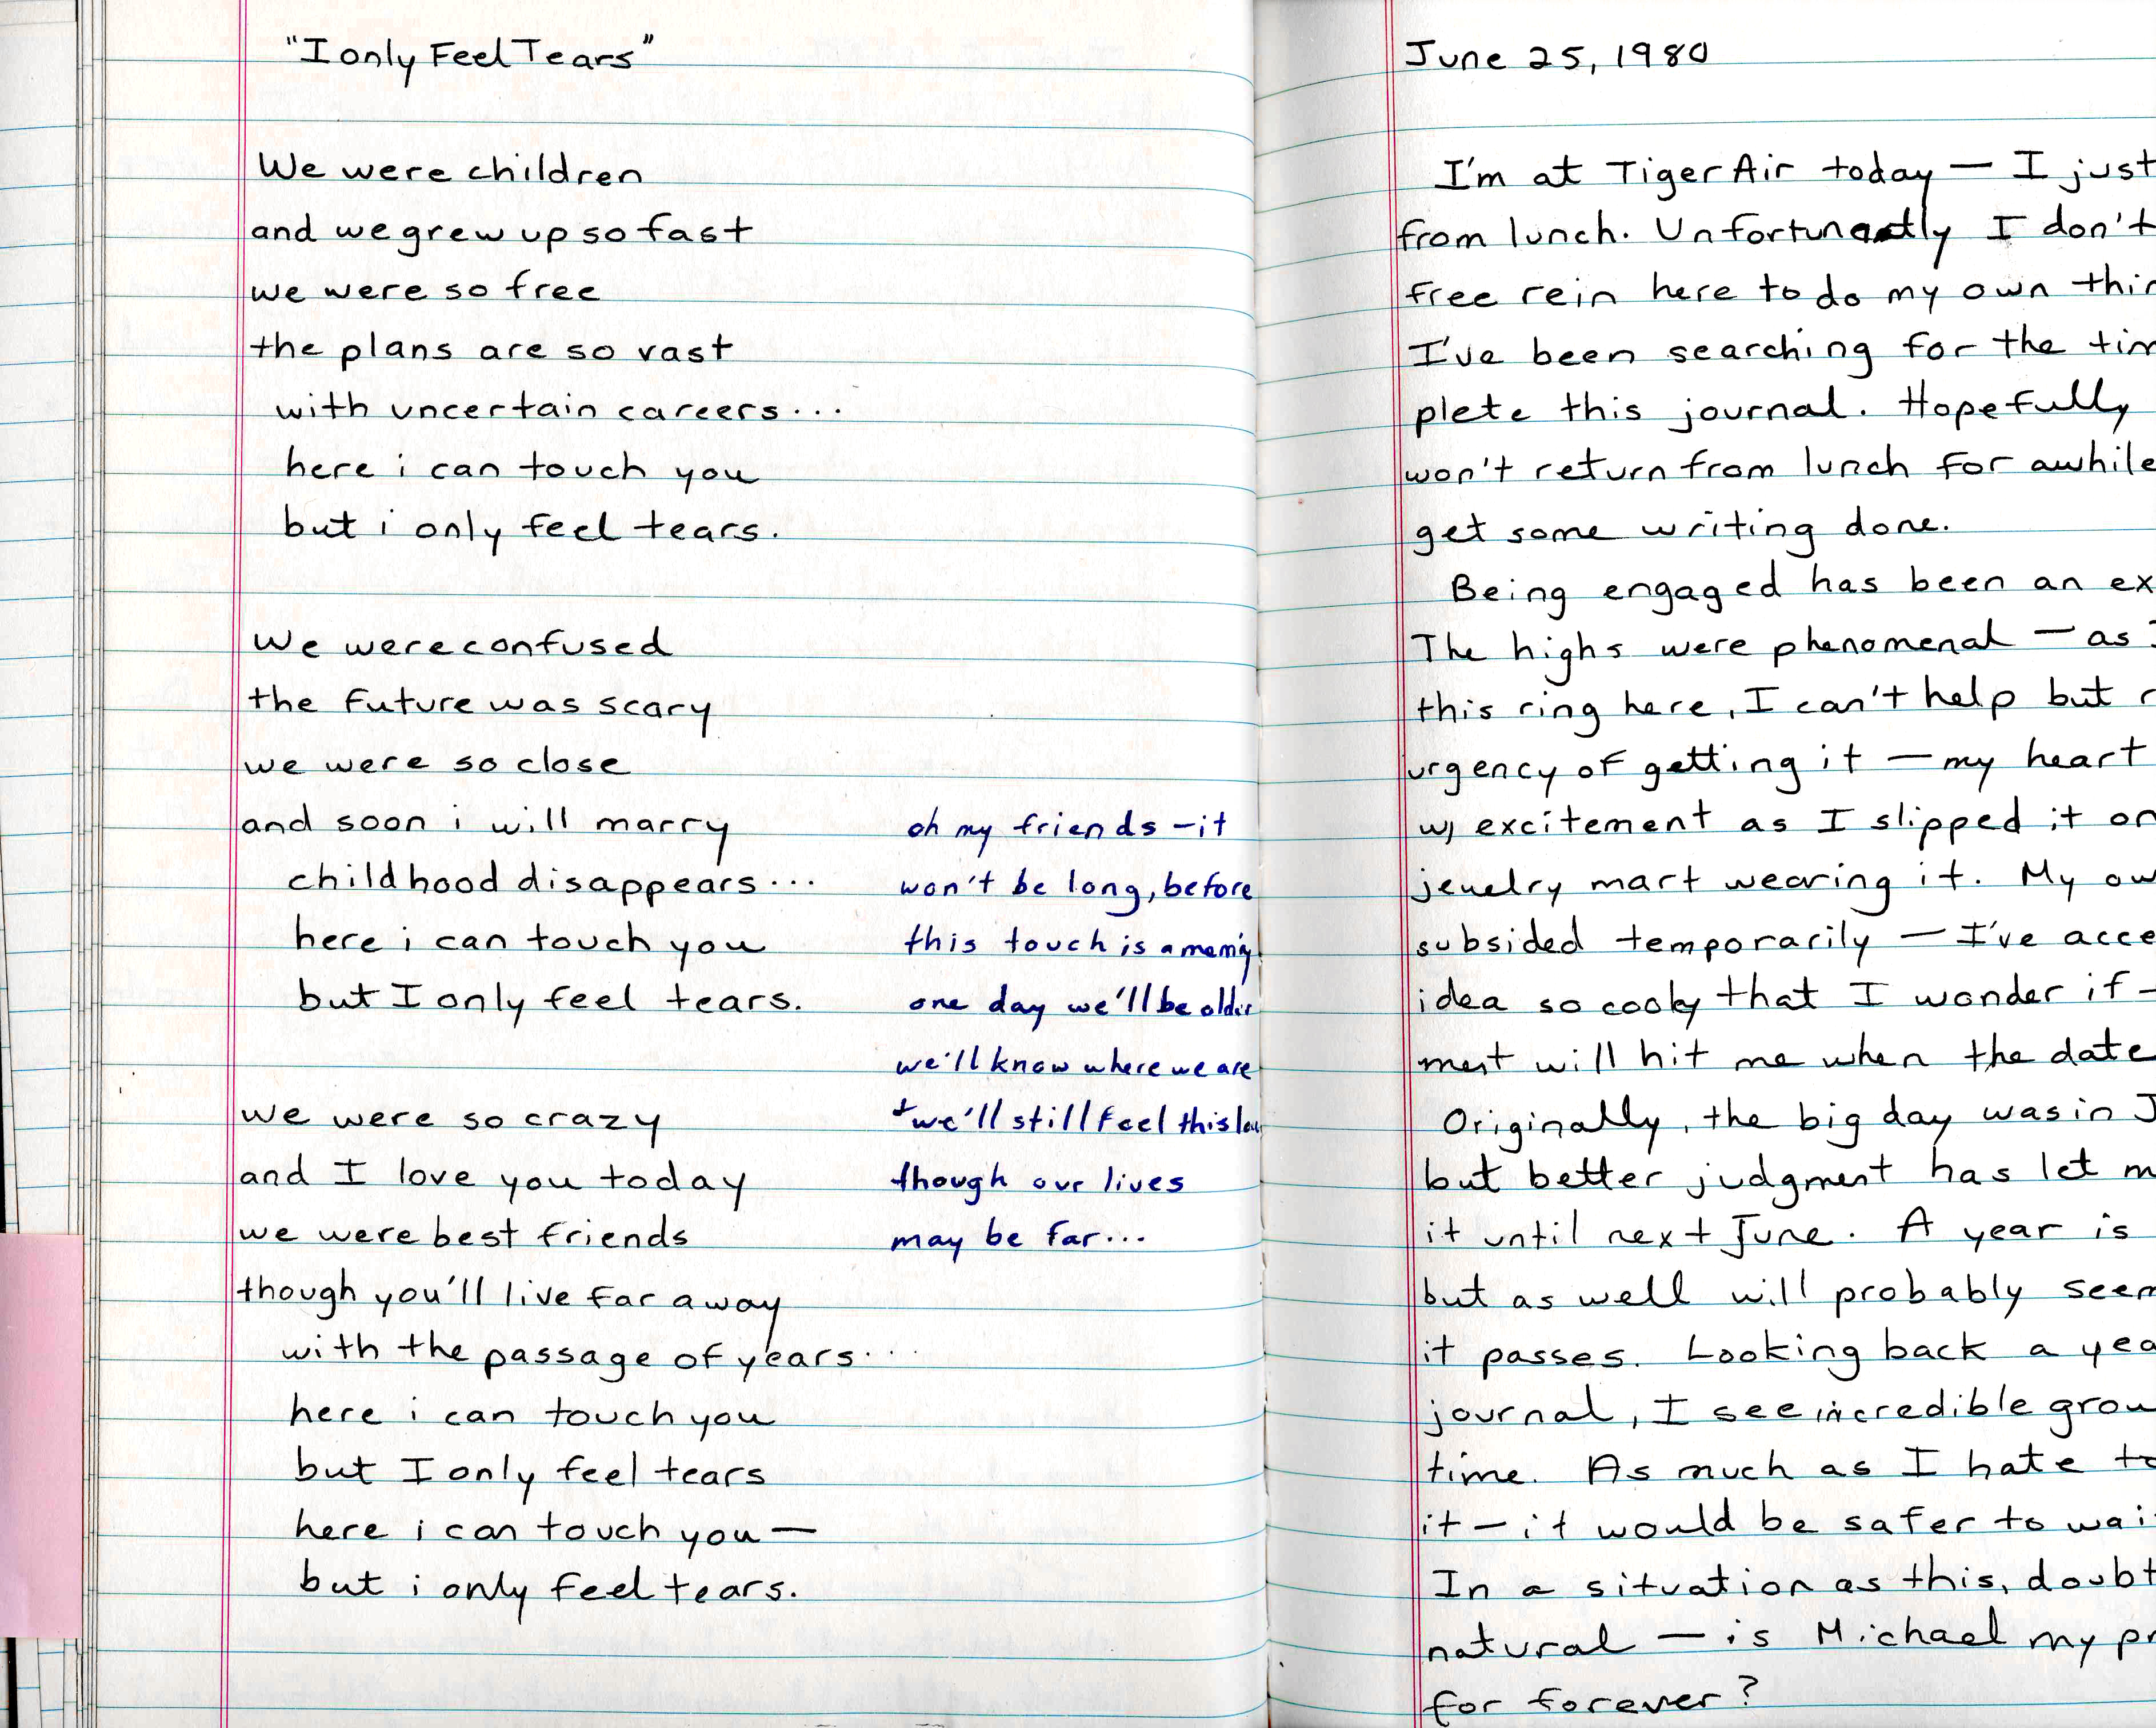 "I only Feel Tears"
We were children
and we grew up so fast
we were so free
the plans are so vast
with uncertain careers...
here i can touch you
but i only feel tears.
We were confused
the future was scary
we were so close
and soon i will marry
childhood disappears...
here i can touch you
but I only feel tears.
we were so crazy
and I love you today
we were best friends
though you'll live far away
with the passage of years...
here i can touch you
but I only feel tears
here i can touch you —
but i only feel tears.
oh my friends - it
won't be long, before
this touch is a
one day we'll be older
we'll know where we are
+ we'll still feel this
though our lives
may be far...
June 25, 1980
I'm at Tiger Air today — I just
from lunch. I don't
free rein here to do my own
I've been searching for the
plete this journal. Hopefully
won't return from lunch for awhile
get some writing done.
Being engaged has been an ex
The highs were phenomenal — as
this ring here, I can't help but
urgency of getting it — my heart
w/ excitement as I slipped it
jewelry mart wearing it. My
subsided temporarily — I've acce
idea so that I wonder if -
ment will hit me when the date
Originally, the big day was in J
but better judgment has let
it until next June. A year is
but as well will probably seem
it passes. Looking back a yea
journal, I see incredible grow
time. As much as I hate to
it - it would be safer to wai
In a situation as this, doubt
natural — is Michael my
for forever?